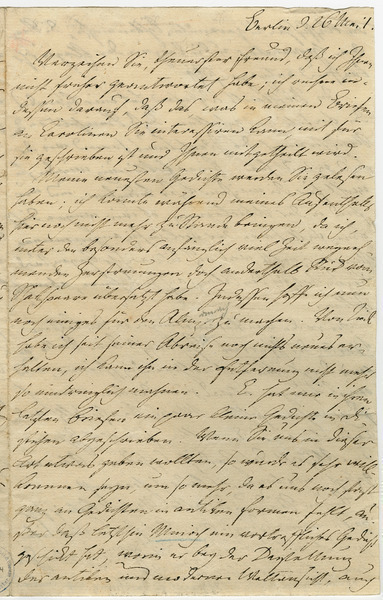 Berlin d 26 Mai
Verzeihen Sie, theuerster Freund, daß ich Ihnen
nicht früher geantwortet habe; ich rechne in-
dessen darauf, daß das was in meinen Briefen
an Karolinen Sie interessiren kann mit für
Sie geschrieben ist und Ihnen mitgetheilt wird.
Meine neuesten Gedichte werden Sie gelesen
haben; ich konnte während meines Aufenthalts
hier noch nicht mehr zu Stande bringen, da ich
unter den besonders anfänglich viel Zeit wegneh-
menden Zerstreuungen doch anderthalb Stück vom
Shakspeare übersetzt habe. Indessen hoffe ich nun
noch einiges für den Almanach zu machen. Von Tieck
habe ich seit seiner Abreise noch nichts neues er-
halten, ich kann ihn in der Entfernung nicht mehr
so eindringlich mahnen. Er hat mir in seinen
letzten Briefen ein paar kleine Gedichte
abgeschrieben. Wenn Sie uns in dieser
Art etwas geben wollten, so würde es sehr will-
kommen seyn, um so mehr, da es uns noch fast
ganz an Gedichten in antiken Formen fehlt,
daß letzthin ein vortreffliches Gedicht
geschickt hat, worin er bey der Darstellung
der antiken und modernen Weltansicht, auch